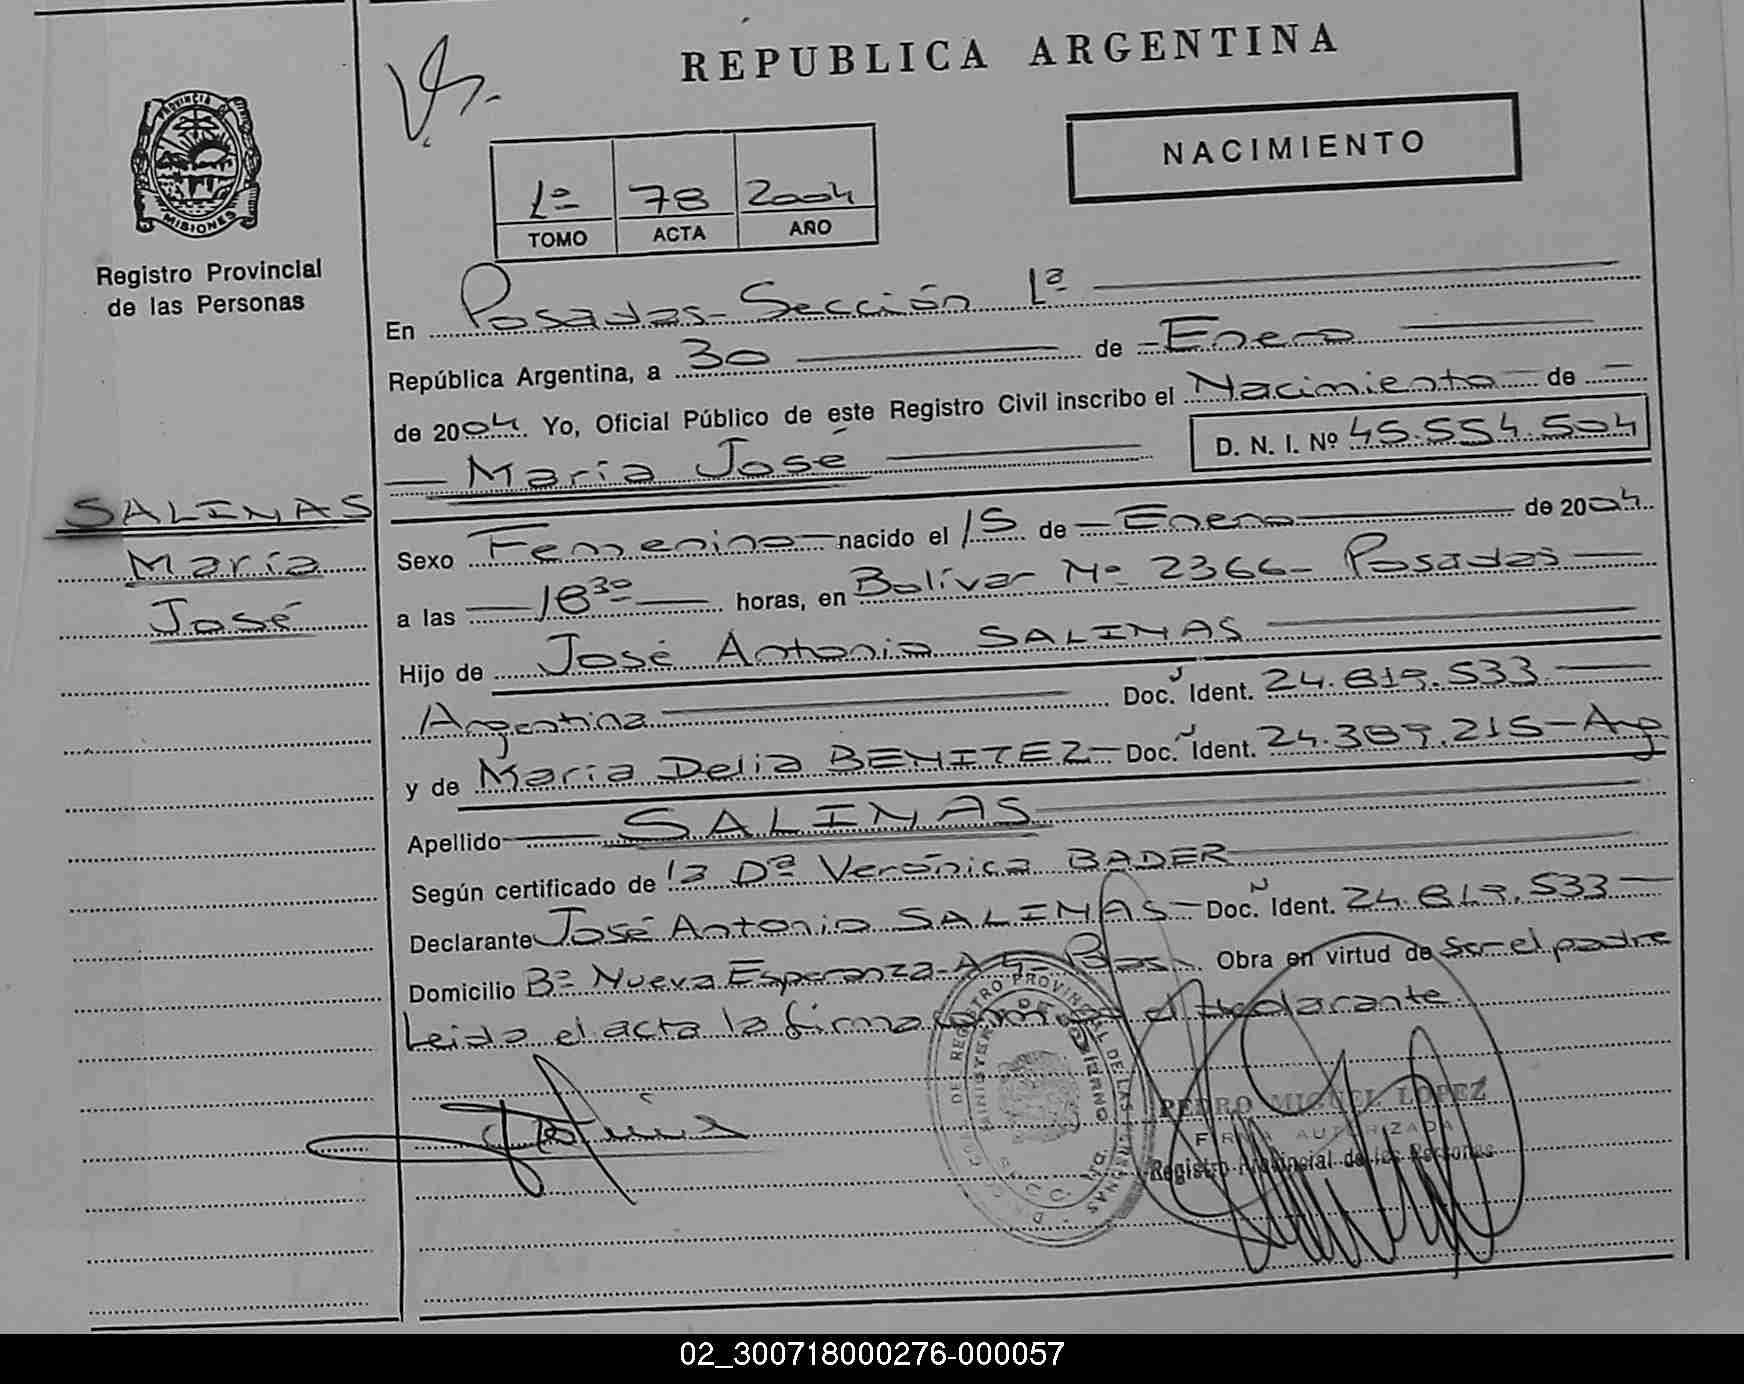 REPUBLICA ARGENTINA
NACIMIENTO
PROVINCIA DE
MISIONES
Registro Provincial
de las Personas
1º 78 2004
TOMO ACTA AÑO
En Posadas - Sección 1ª
República Argentina, a 30 de Enero
de 2004 Yo, Oficial Público de este Registro Civil inscribo el Nacimiento de
María José D. N. I. Nº 45.554.504
SALINAS
María
José
Sexo Femenino nacido el 15 de Enero de 2004
a las 18³⁰ horas, en Bolívar Nº 2366 - Posadas
Hijo de José Antonio SALINAS
Argentina Doc. Ident. 24.819.533
y de María Delia BENITEZ Doc. Ident. 24.389.215 - Arg
Apellido SALINAS
Según certificado de la Dª Verónica BADER
Declarante José Antonio SALINAS Doc. Ident. 24.819.533
Domicilio Bº Nueva Esperanza - A 4 - Pdas. Obra en virtud de ser el padre
Leida el acta la firma el declarante
PEDRO MIGUEL LOPEZ
FIRMA AUTORIZADA
Registro Provincial de las Personas
02_300718000276-000057